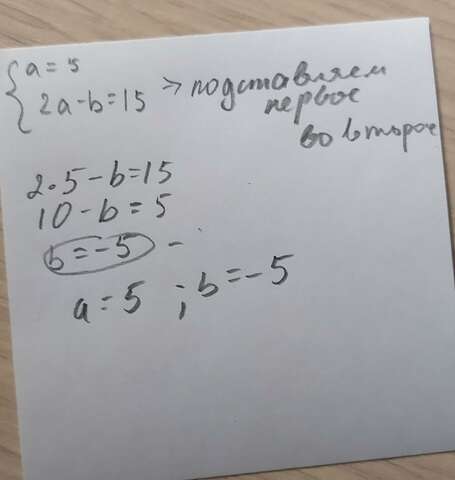 a = 5
2a - b = 15 → подставляем
первое
во второе
2 · 5 - b = 15
10 - b = 5
b = -5 -
a = 5 ; b = -5